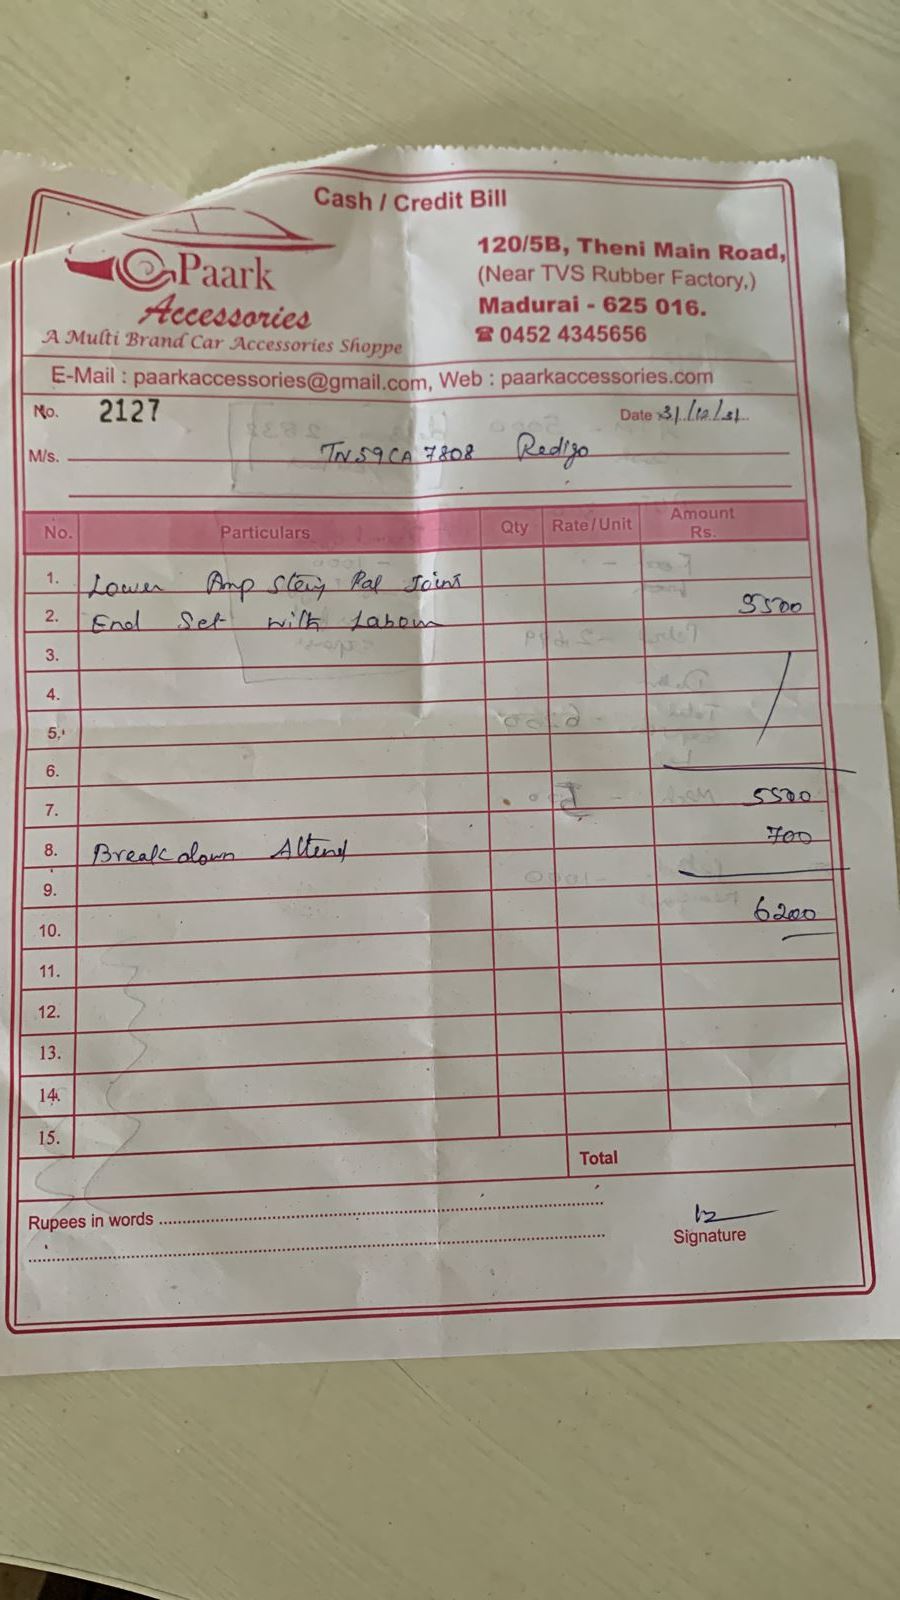 Cash / Credit Bill
Paark
Accessories
A Multi Brand Car Accessories Shoppe
120/5B, Theni Main Road,
(Near TVS Rubber Factory,)
Madurai - 625 016.
☎ 0452 4345656
E-Mail : paarkaccessories@gmail.com, Web : paarkaccessories.com
No. 2127
Date 31/12/31
M/s. TN59CA 7808 Redigo
No. Particulars Qty Rate/Unit Amount Rs.
1. Lower Joint
2. End Set with Labour 5500
3.
4.
5.
6.
7. 5500
8. Breakdown Attend 700
9.
10. 6200
11.
12.
13.
14.
15.
Total
Rupees in words
Signature